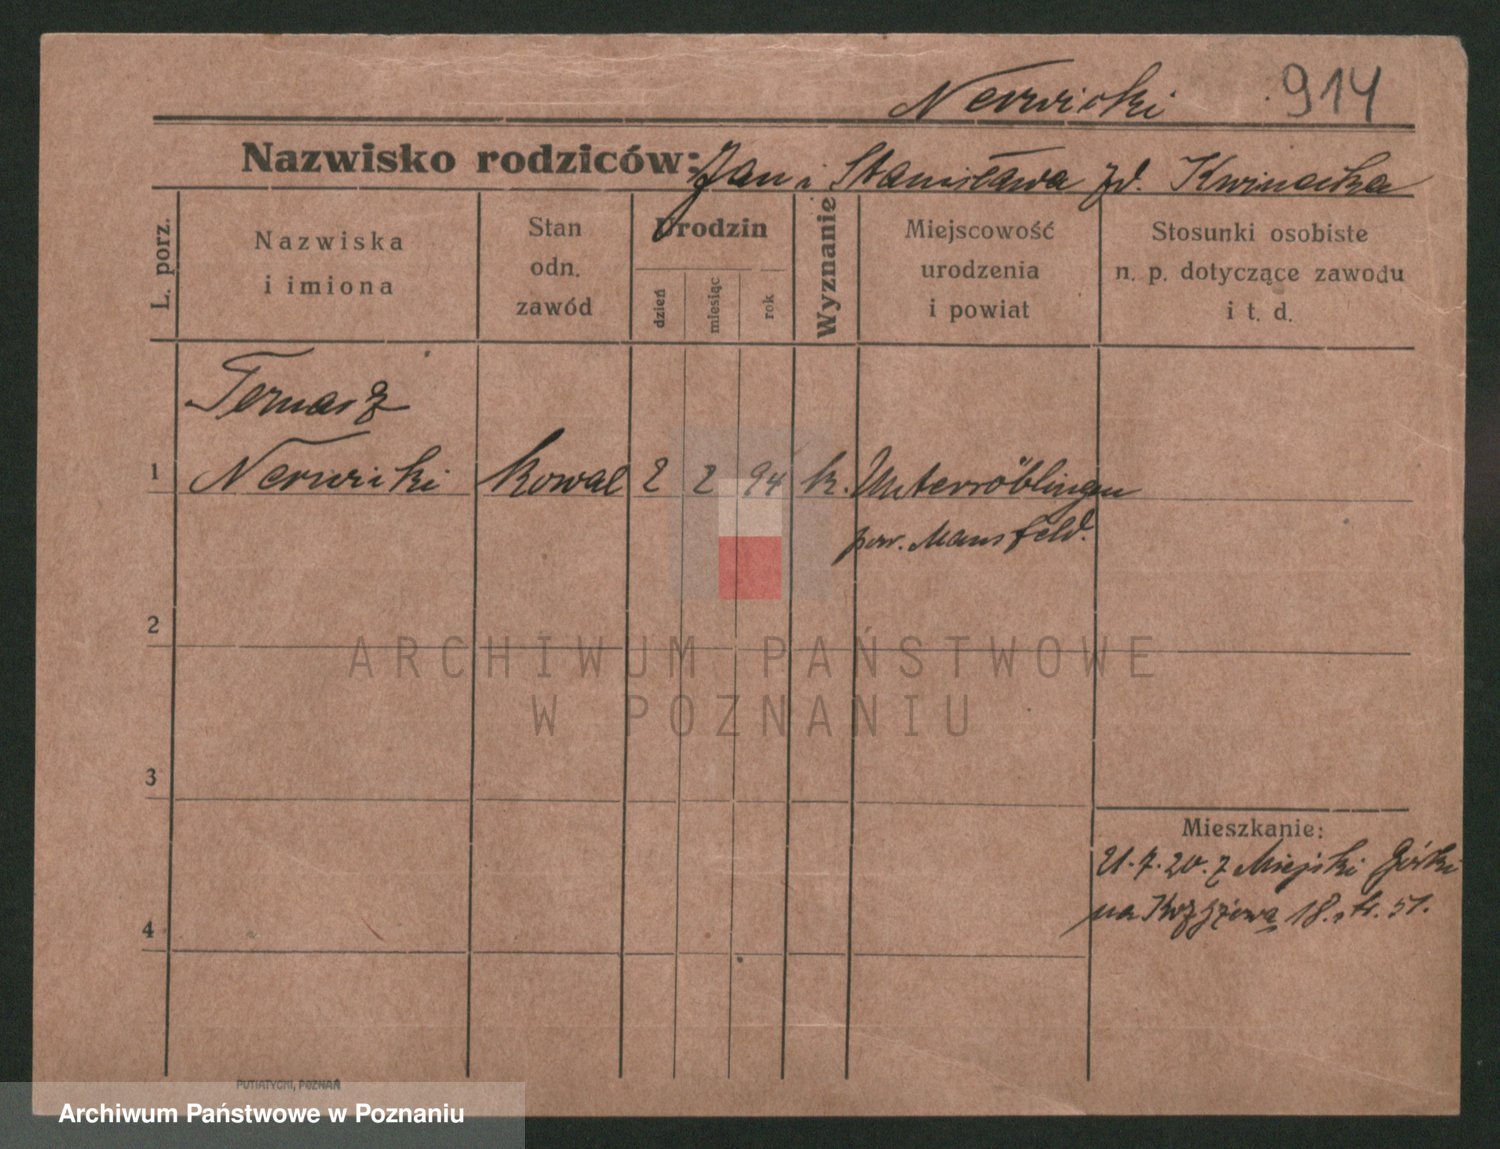 Nerwicki 914
Nazwisko rodziców: Jan i Stanisława zd. Kwinecka
L. porz.
Nazwiska
i imiona
Stan
odn.
zawód
Urodzin
dzień
miesiąc
rok
Wyznanie
Miejscowość
urodzenia
i powiat
Stosunki osobiste
n. p. dotyczące zawodu
i t. d.
1
Nerwicki kowal 2 2 94 k. Unterröblingen
pow. Mansfeld.
2
3
4
ARCHIWUM PAŃSTWOWE
W POZNANIU
Mieszkanie:
21.7.20. z Miejski Górki
na 18. str. 51.
PUTIATYCKI, POZNAŃ
Archiwum Państwowe w Poznaniu